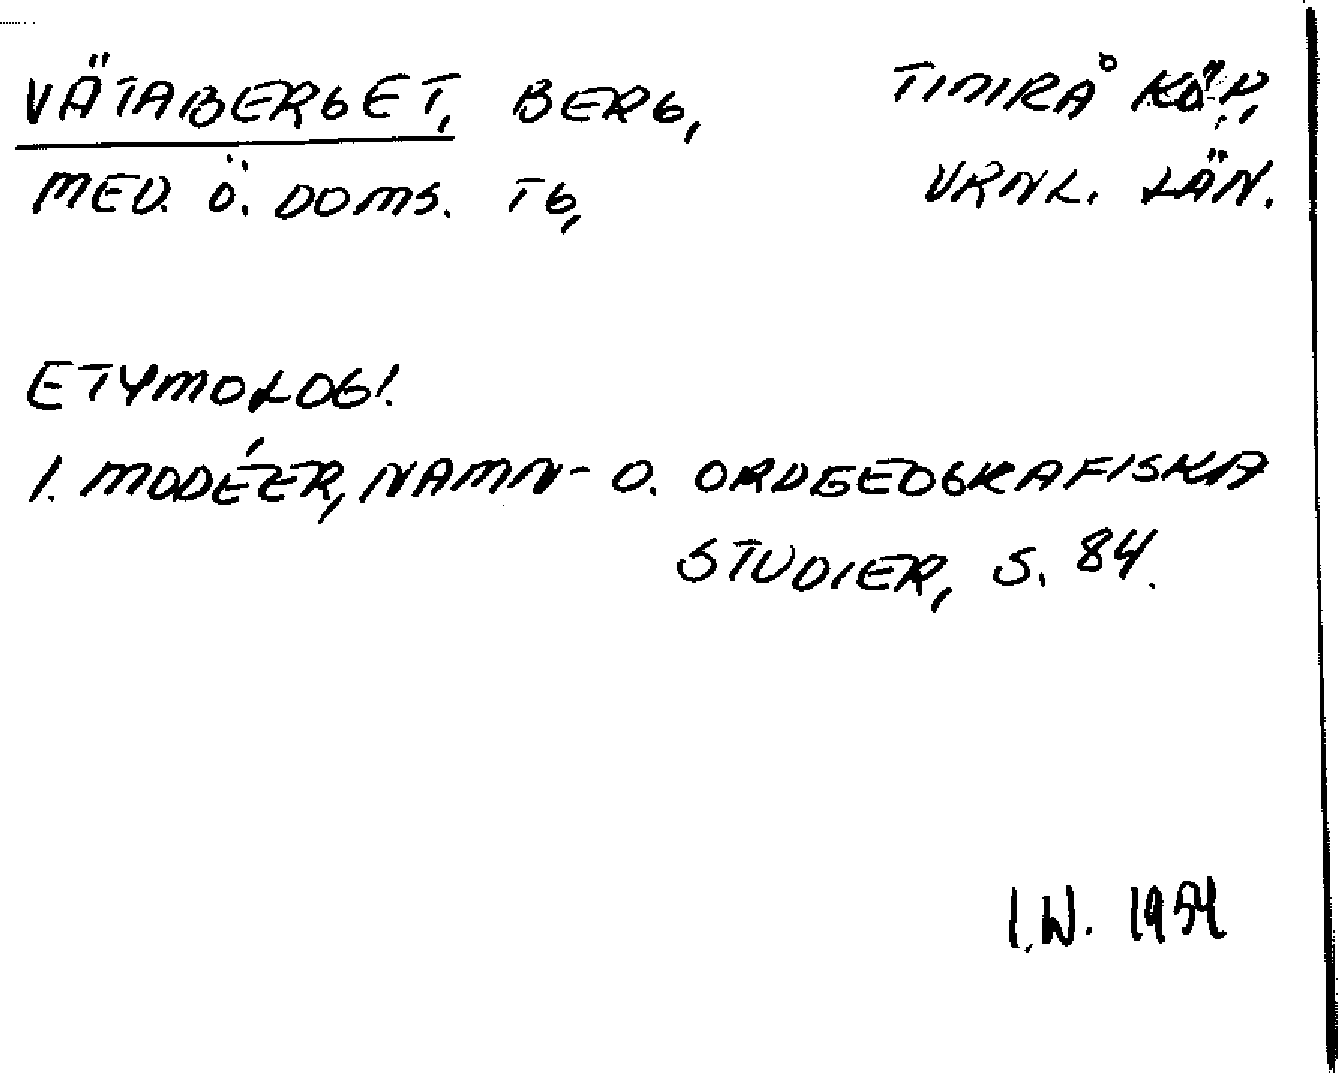 VÄTABERGET, BERG, TIMRÅ KÖP,
MED. Ö. DOMS. TG, VRNL. LÄN.
ETYMOLOGI.
I. MODÉER, NAMN- O. ORDGEOGRAFISKA
STUDIER, S. 84.
I.W. 1954